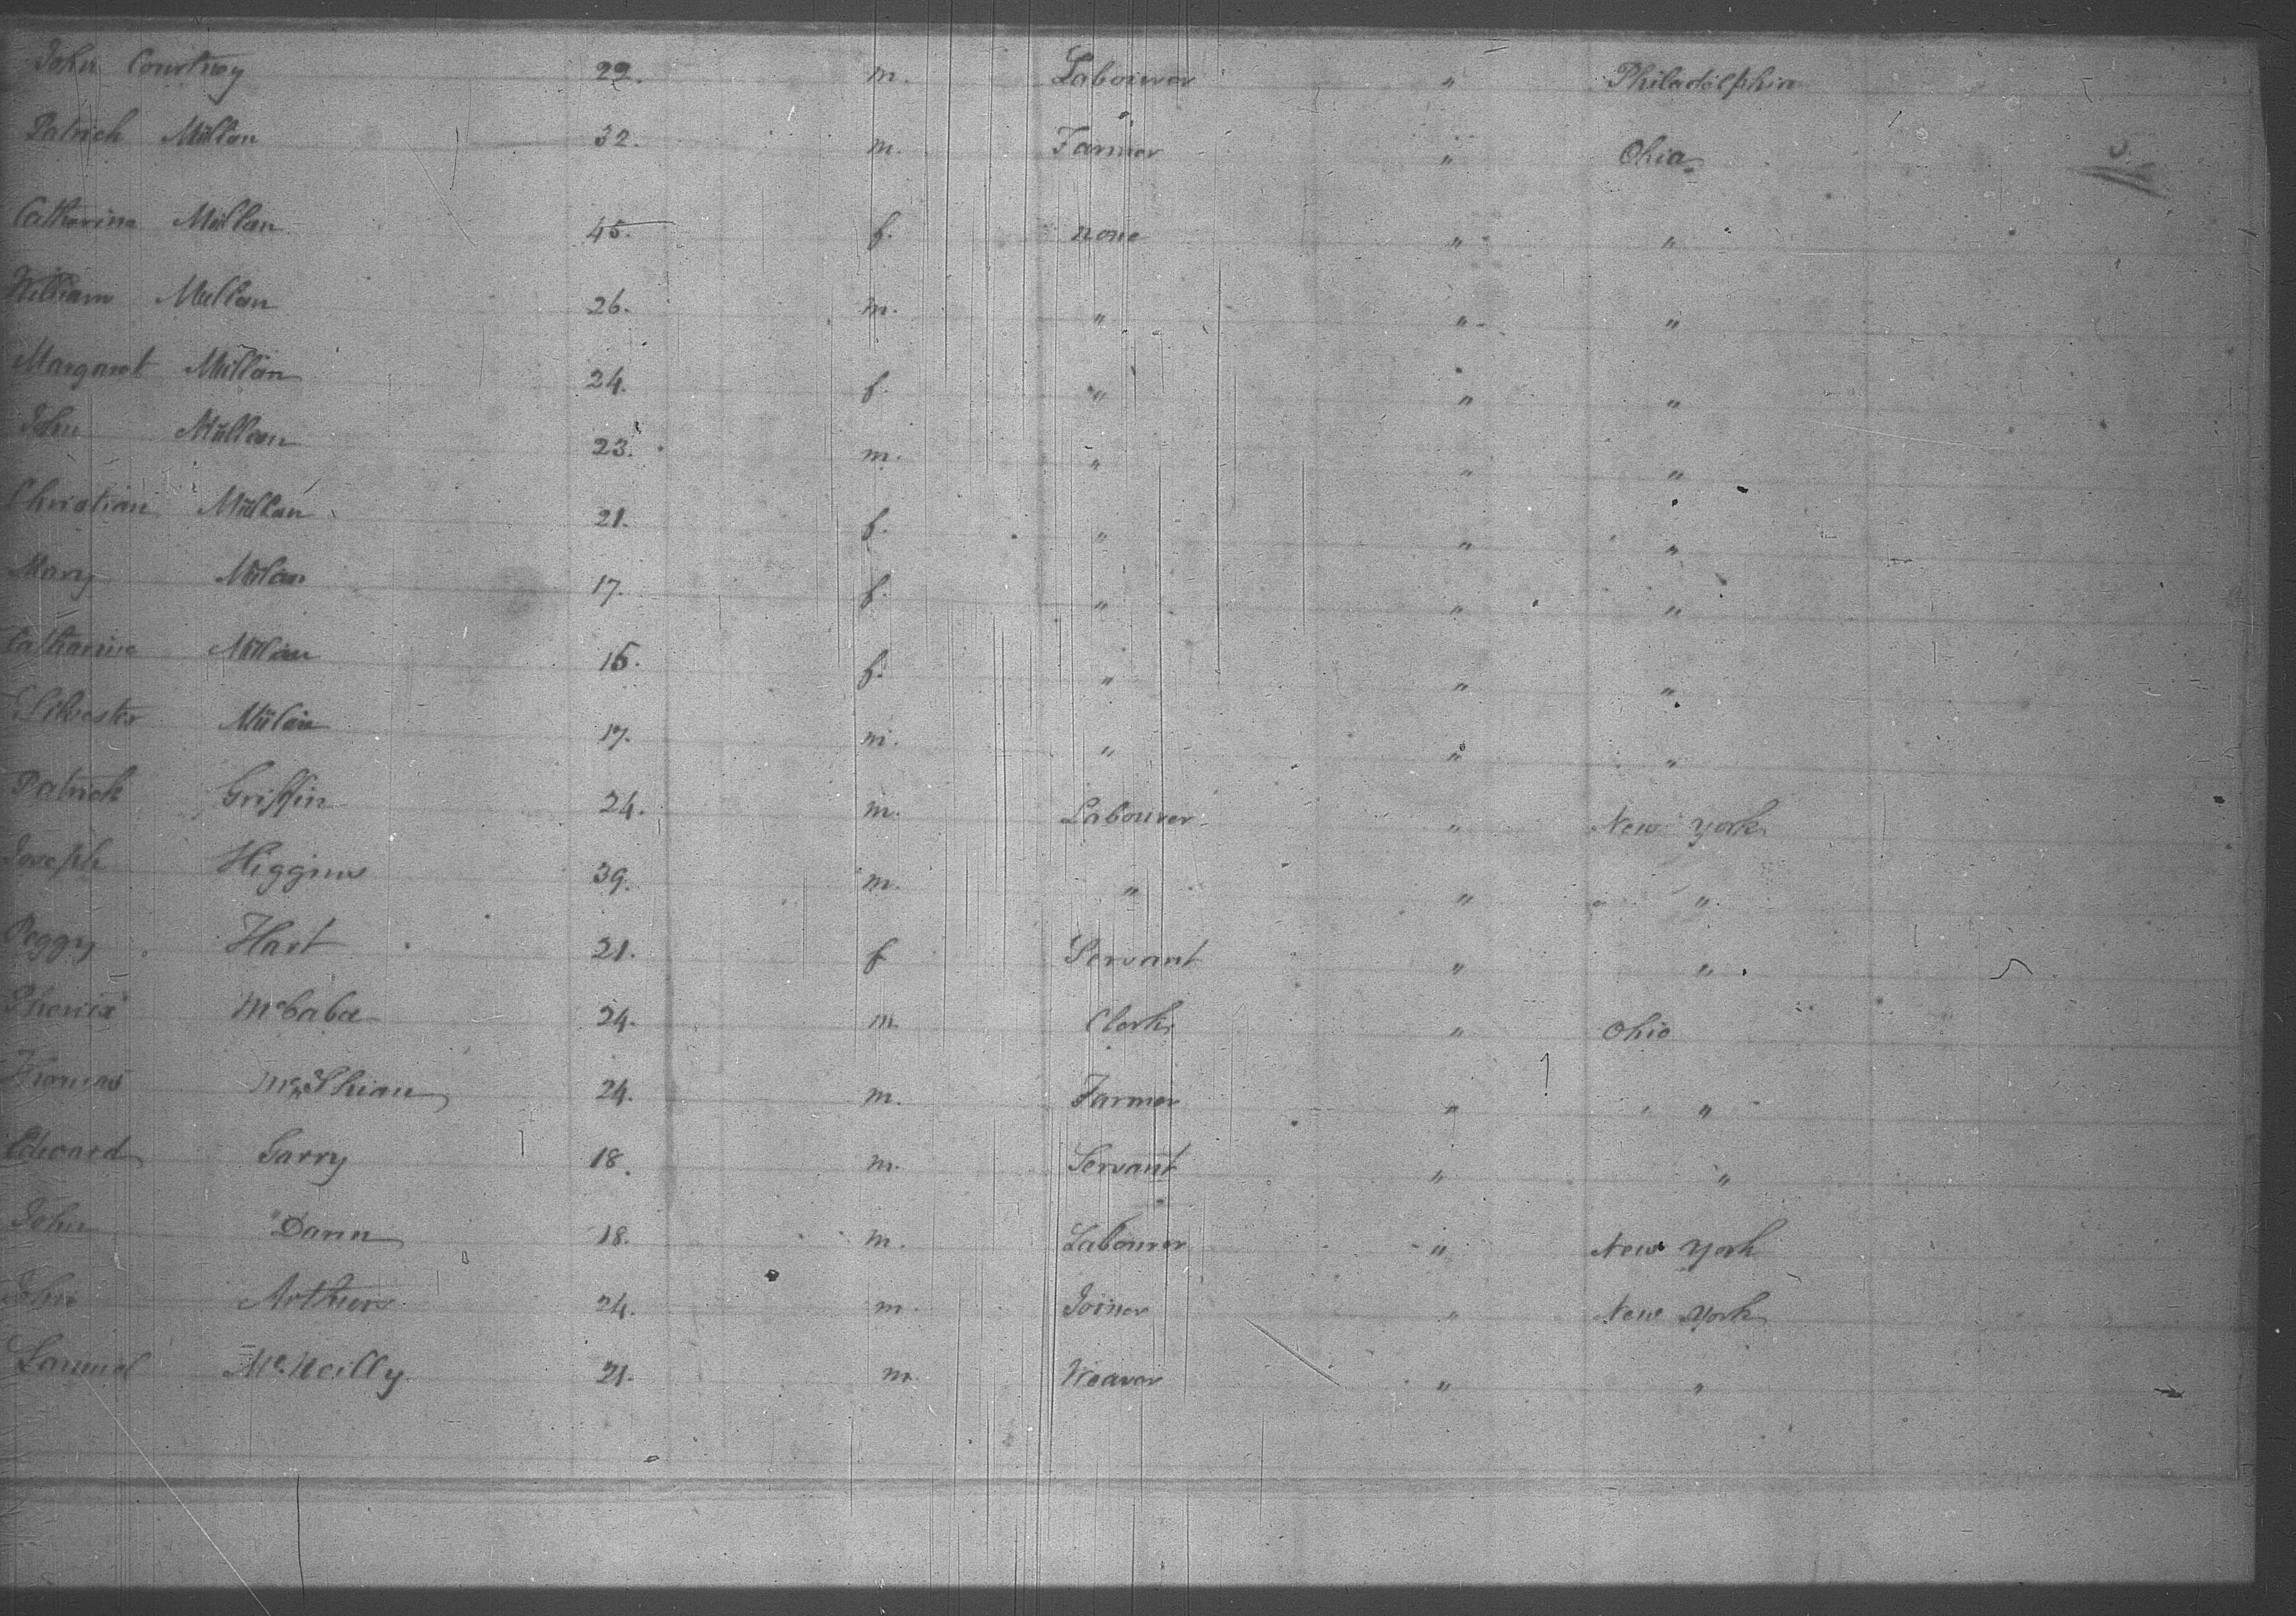 John Courtney 22. m. Labourer " Philadelphia
Patrick Müllan 32. m. Farmer " Ohio
Catherine Müllan 45. f. none " "
William Mullan 26. m. " " "
Margaret Müllan 24. f. " " "
John Müllan 23. m. " " "
Christian Müllan 21. f. " " "
Mary Mülan 17. f. " " "
Catharine Müllan 15. f. " " "
Silvester Mülan 17. m. " " "
Patrick Griffin 24. m. Labourer " New York
Joseph Higgins 39. m. " " " "
Peggy Hart 21. f Servant " "
McCabe 24. m Clerk " Ohio
Thomas 24. m. Farmer " "
Edward Garry 18. m. Servant " "
John Dann 18. m. Labourer " New York
John Arthurs 24. m. Joiner " New York
Samuel McNeilly 21. m. Weaver " "